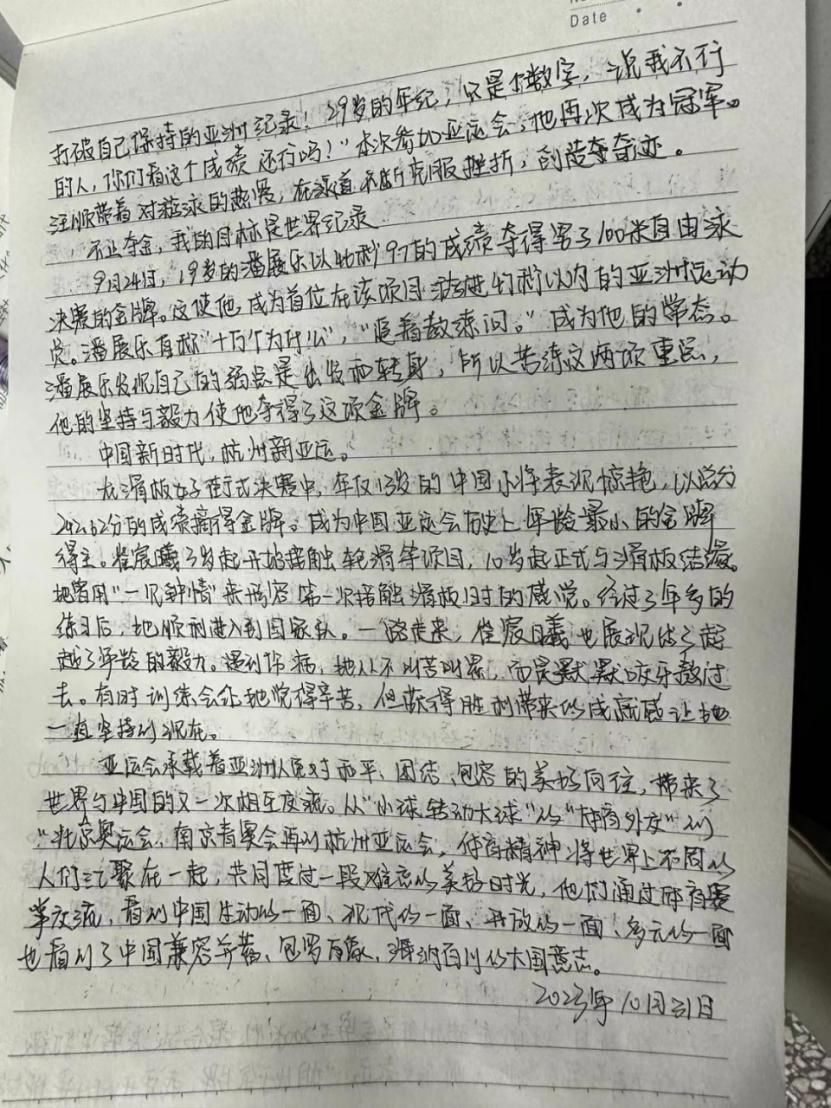 Date
打破自己保持的亚洲纪录！29岁的年纪，只是个数字，说我不行
的人，你们看这个成绩还行吗！”本次参加亚运会，他再次成为冠军。
汪顺带着对游泳的热爱，在泳道不断克服挫折，创造奇迹。
不止夺金，我的目标是世界纪录
9月24日，19岁的潘展乐以46秒97的成绩夺得男子100米自由泳
决赛的金牌。这使他成为首位在该项目游进47秒以内的亚洲运动
员。潘展乐自称“十万个为什么”，“追着教练问。”成为他的常态。
潘展乐发现自己的弱点是出发和转身，所以苦练这两项重点，
他的坚持与毅力使他夺得了这项金牌。
中国新时代，杭州新亚运。
在滑板女子街式决赛中，年仅13岁的中国小将表现惊艳，以总分
242.62分的成绩摘得金牌。成为中国亚运会历史上年龄最小的金牌
得主。崔宸曦7岁起开始接触轮滑等项目，10岁起正式与滑板结缘。
她曾用“一见钟情”来形容第一次接触滑板时的感觉。经过3年多的
练习后，她顺利进入到国家队。一路走来，崔宸曦也展现出了超
越了年龄的毅力。遇到伤病，她从不叫苦叫累，而是默默咬牙熬过
去。有时训练会让她觉得辛苦，但获得胜利带来的成就感让她
一直坚持到现在。
亚运会承载着亚洲人民对和平、团结、包容的美好向往，带来了
世界与中国的又一次相互交流。从“小球转动大球”的“体育外交”到
“北京奥运会、南京青奥会再到杭州亚运会，体育精神将世界上不同的
人们汇聚在一起，共同度过一段难忘的美好时光，他们通过体育赛
事交流，看到中国生动的一面、现代的一面、开放的一面、多元的一面
也看到了中国兼容并蓄、包罗万象、海纳百川的大国意志。
2023年10月31日